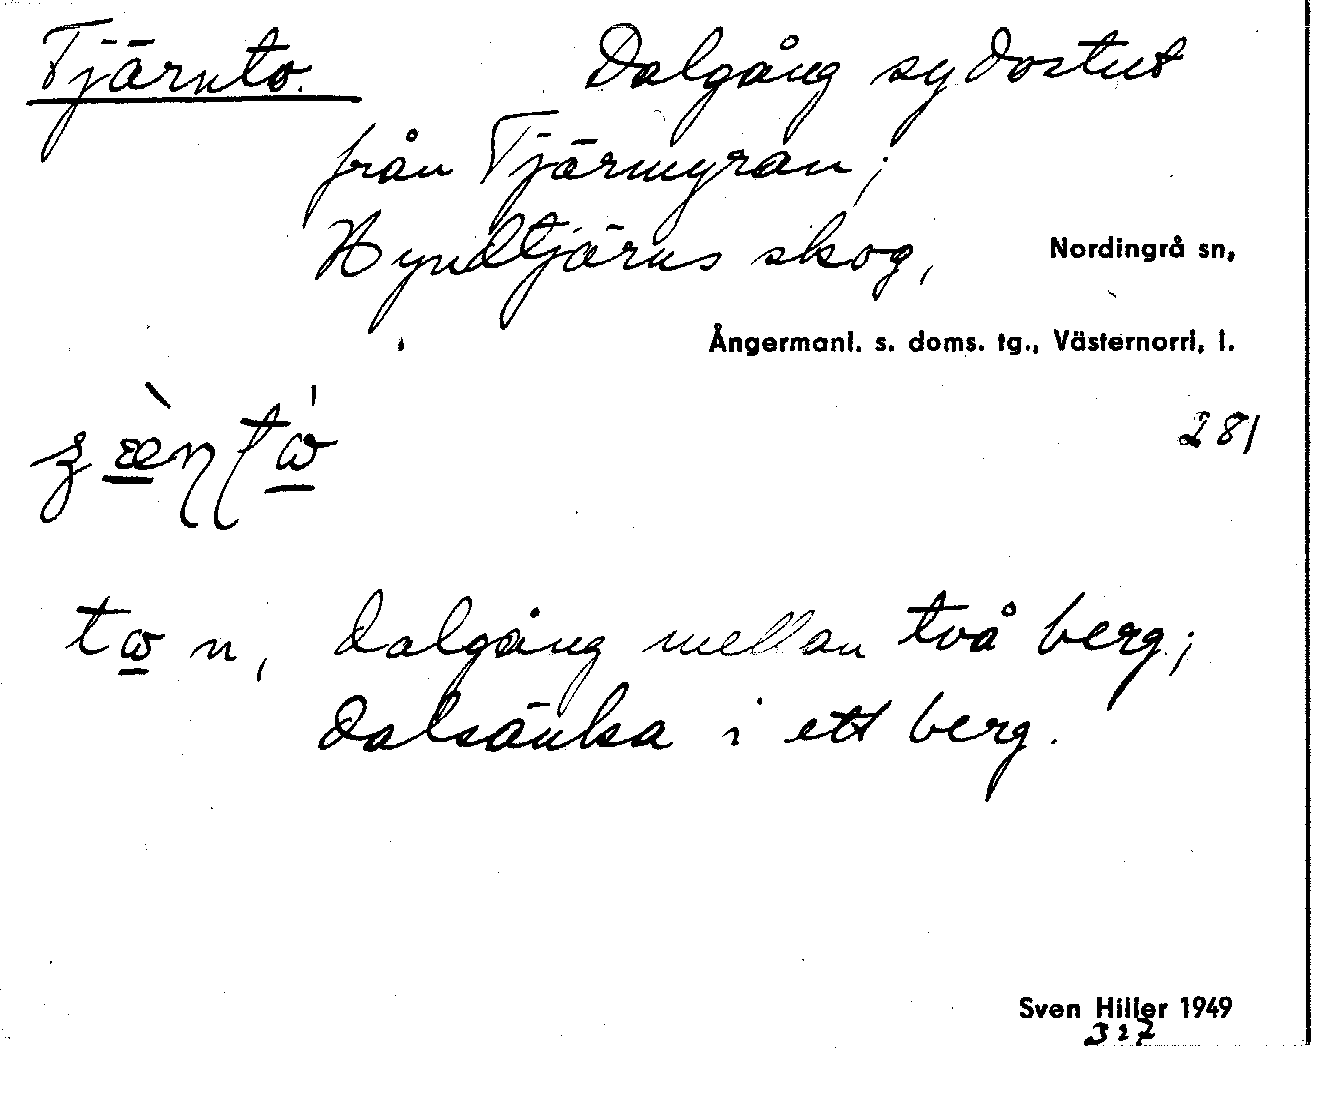 Tjärnto. Dalgång sydostut
från Tjärmyran;
Hyndtjärns skog, Nordingrå sn,
Ångermanl. s. doms. tg., Västernorrl. l.
281
tω n, dalgång mellan två berg;
dalsänka i ett berg.
Sven Hiller 1949
327